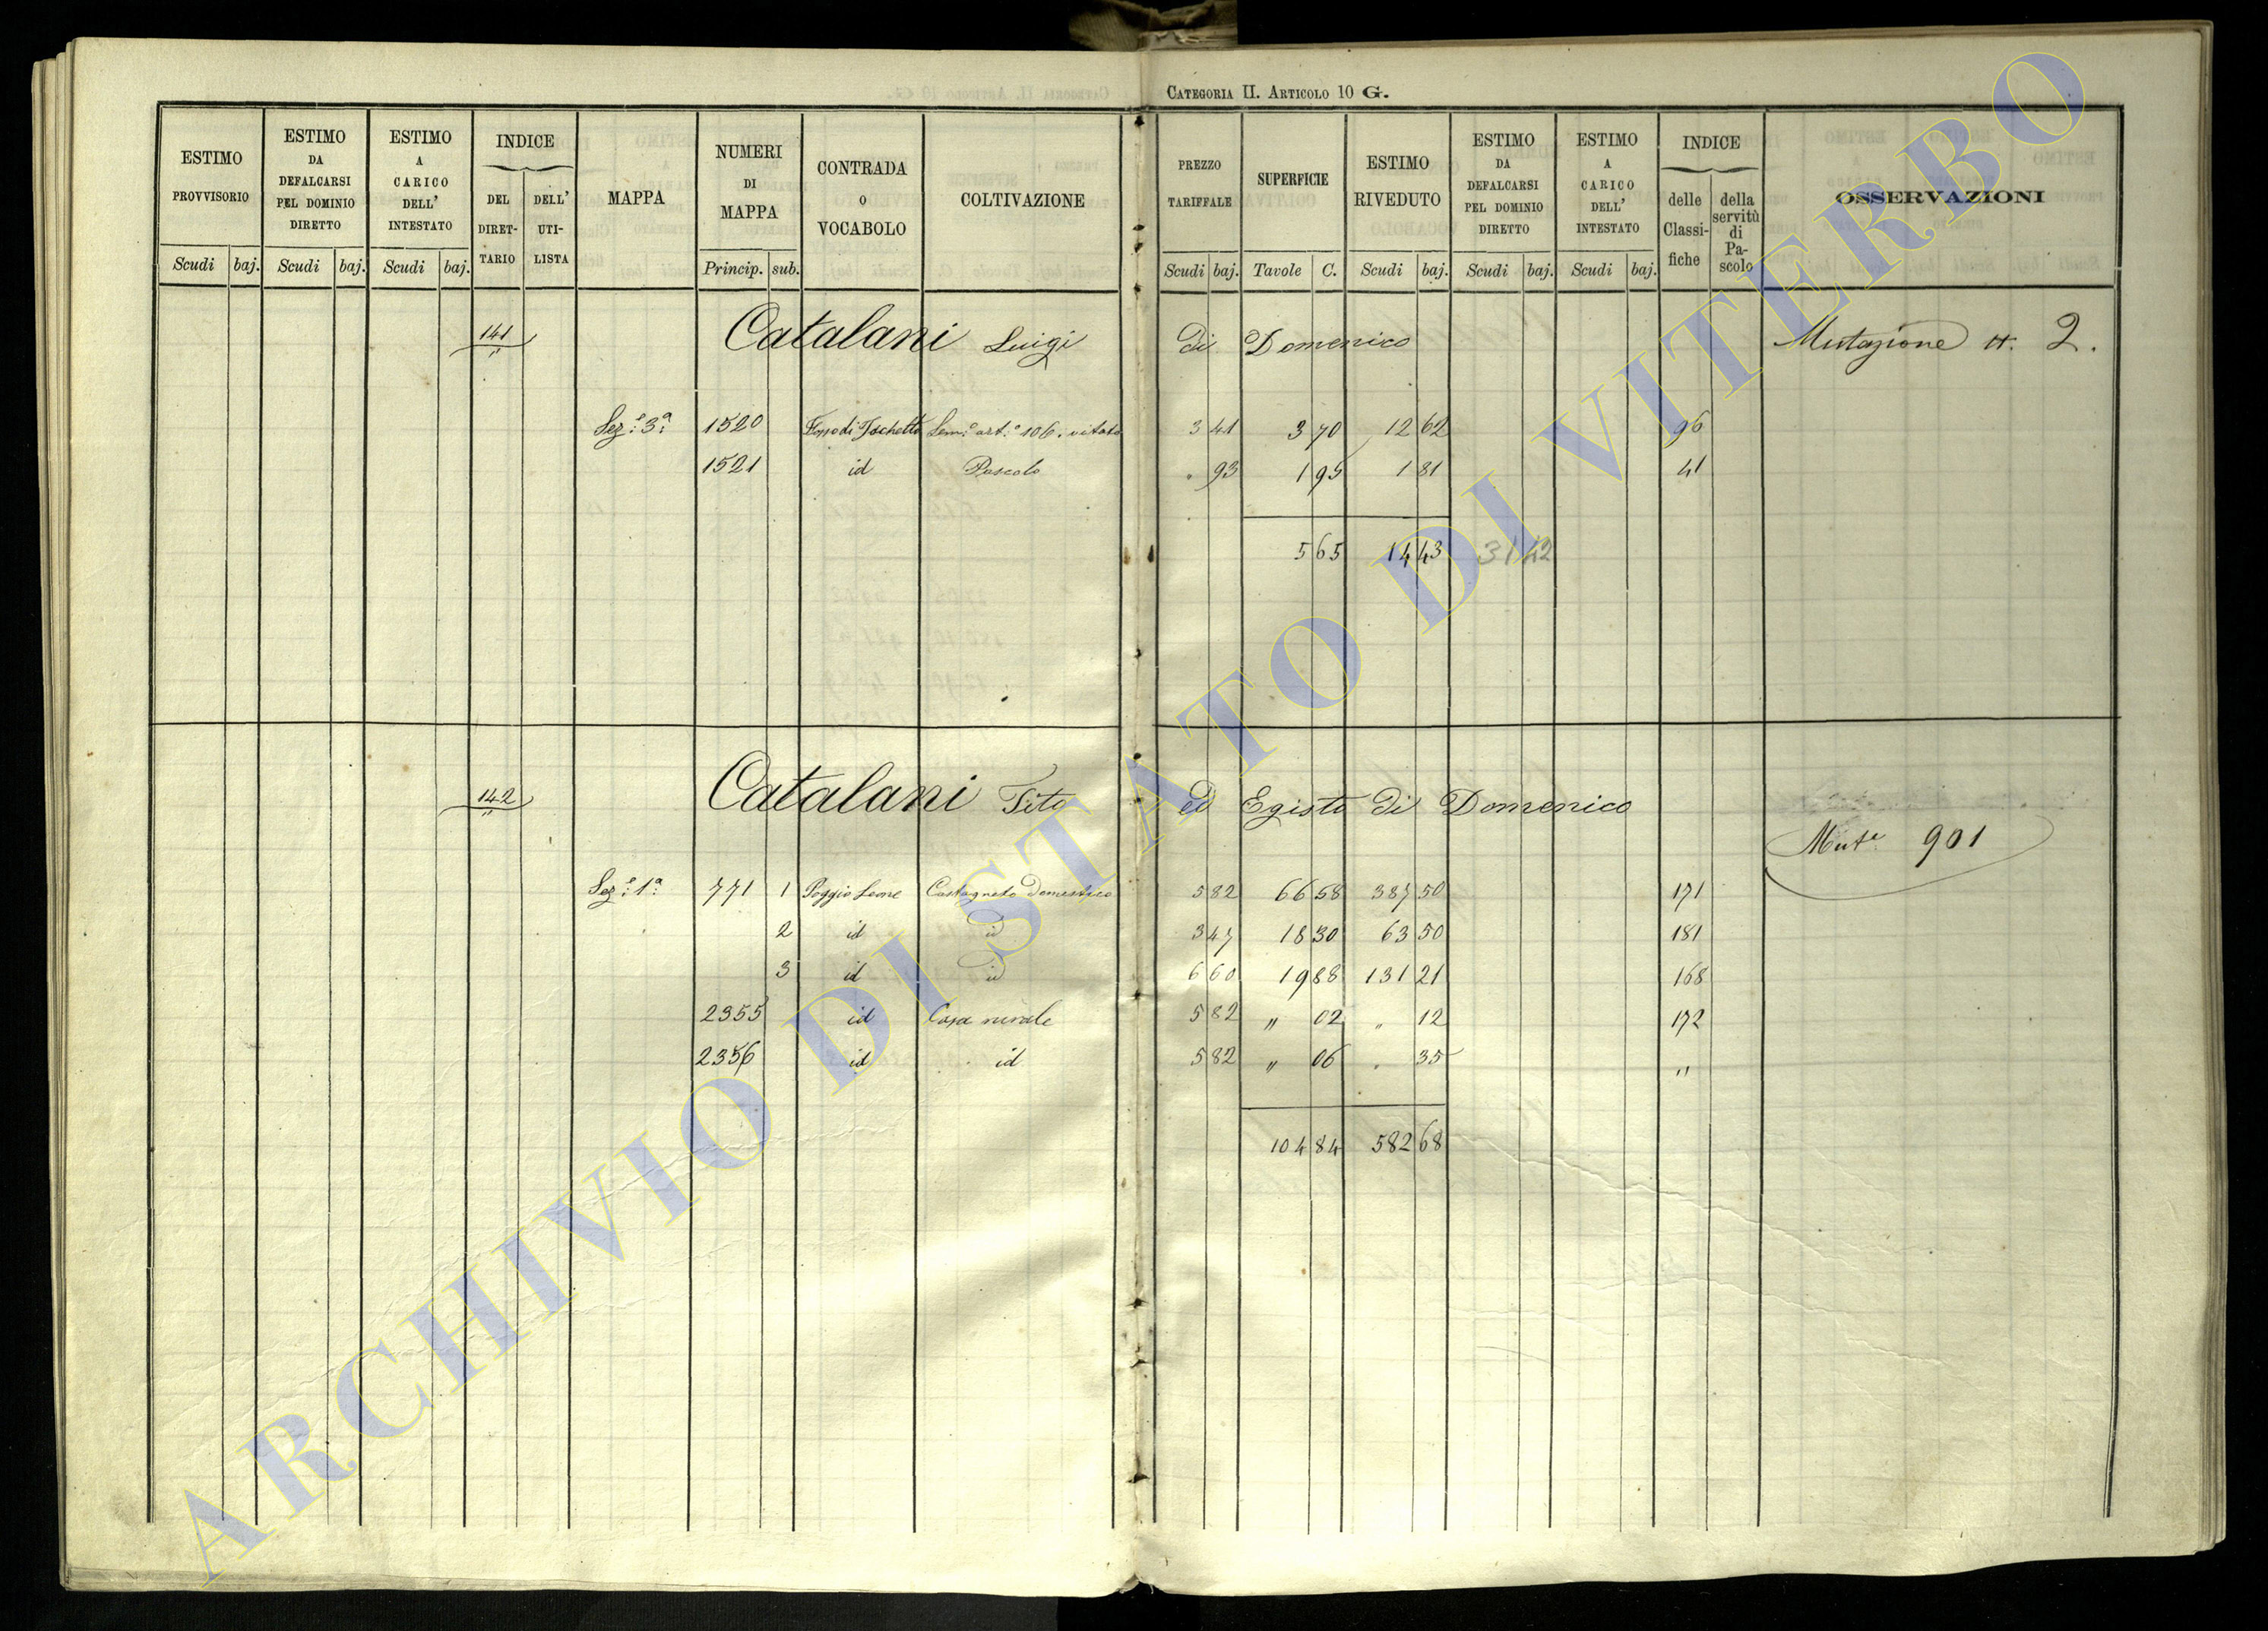 CATEGORIA II. ARTICOLO 10 G.
ESTIMO PROVVISORIO
ESTIMO DA DEFALCARSI PEL DOMINIO DIRETTO
ESTIMO A CARICO DELL' INTESTATO
INDICE
DEL DIRET-TARIO
DELL' UTI-LISTA
MAPPA
NUMERI DI MAPPA
CONTRADA O VOCABOLO
COLTIVAZIONE
PREZZO TARIFFALE
SUPERFICIE
ESTIMO RIVEDUTO
ESTIMO DA DEFALCARSI PEL DOMINIO DIRETTO
ESTIMO A CARICO DELL' INTESTATO
INDICE
delle Classi-fiche
della servitù di Pa-scolo
OSSERVAZIONI
Scudi baj. Scudi baj. Scudi baj. Princip. sub. Scudi baj. Tavole C. Scudi baj. Scudi baj. Scudi baj.
141 Catalani Luigi di Domenico Mutazione n. 2.
Sez.e 3a 1520 Fosso di Ischetto Sem.o art.o 106. vitato 3 41 3 70 12 62 96
1521 id Pascolo " 93 1 95 1 81 41
5 65 14 43 31 42
142 Catalani Tito ed Egisto di Domenico
Mut.e 901
Sez.e 1a 771 1 Poggio Leone Castagneto Domestico 5 82 66 58 387 50 171
2 id id 3 47 18 30 63 50 181
3 id id 6 60 19 88 131 21 168
2355 id Casa rurale 5 82 " 02 " 12 172
2356 id id 5 82 " 06 " 35 "
104 84 582 68
ARCHIVIO DI STATO DI VITERBO